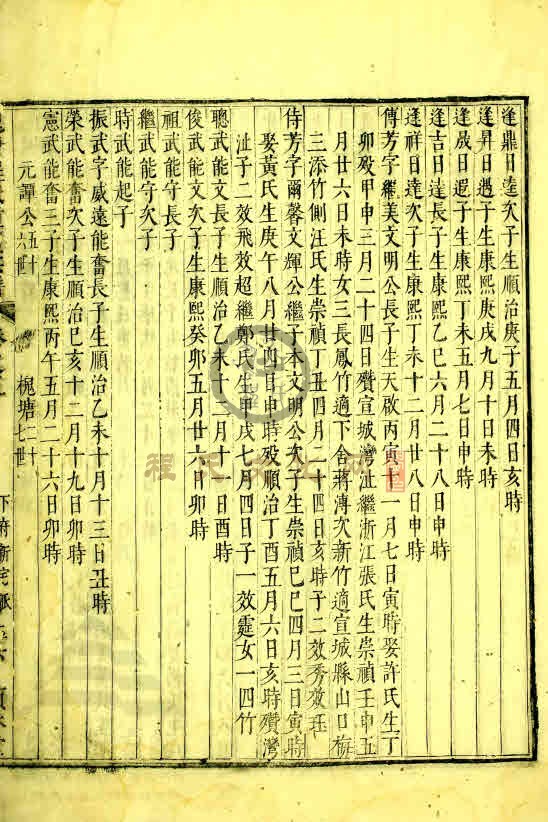 逢鼎日達次子生順治庚子五月四日亥時
逢昇日遇子生康熙庚戌九月十日未時
逢晟日遐子生康熙丁未五月七日申時
逢吉日達長子生康熙乙巳六月二十八日申時
逢祥日達次子生康熙丁未十二月廿八日申時
傳芳字繼美文明公長子生天啟丙寅十一月七日寅時娶許氏生丁
卯歿甲申三月二十四日殯宣城灣沚繼浙江張氏生崇禎壬申五
月廿六日未時女三長鳳竹適下舍蔣溥次新竹適宣城縣山口梅
三添竹側汪氏生崇禎丁丑四月二十四日亥時子二效秀效珏
侍芳字爾馨文輝公繼子本文明公次子生崇禎己巳四月三日寅時
娶黃氏生庚午八月廿四日申時歿順治丁酉五月六日亥時殯灣
沚子二效飛效超繼鄭氏生甲戌七月四日子一效霆女一四竹
聰武能文長子生順治乙未十二月十一日酉時
俊武能文次子生康熙癸卯五月廿六日卯時
祖武能守長子
繼武能守次子
時武能起子
振武字威遠能奮長子生順治乙未十月十三日丑時
榮武能奮次子生順治己亥十二月十九日卯時
憲武能奮三子生康熙丙午五月二十六日卯時
元譚公五十六世 槐塘二十七世